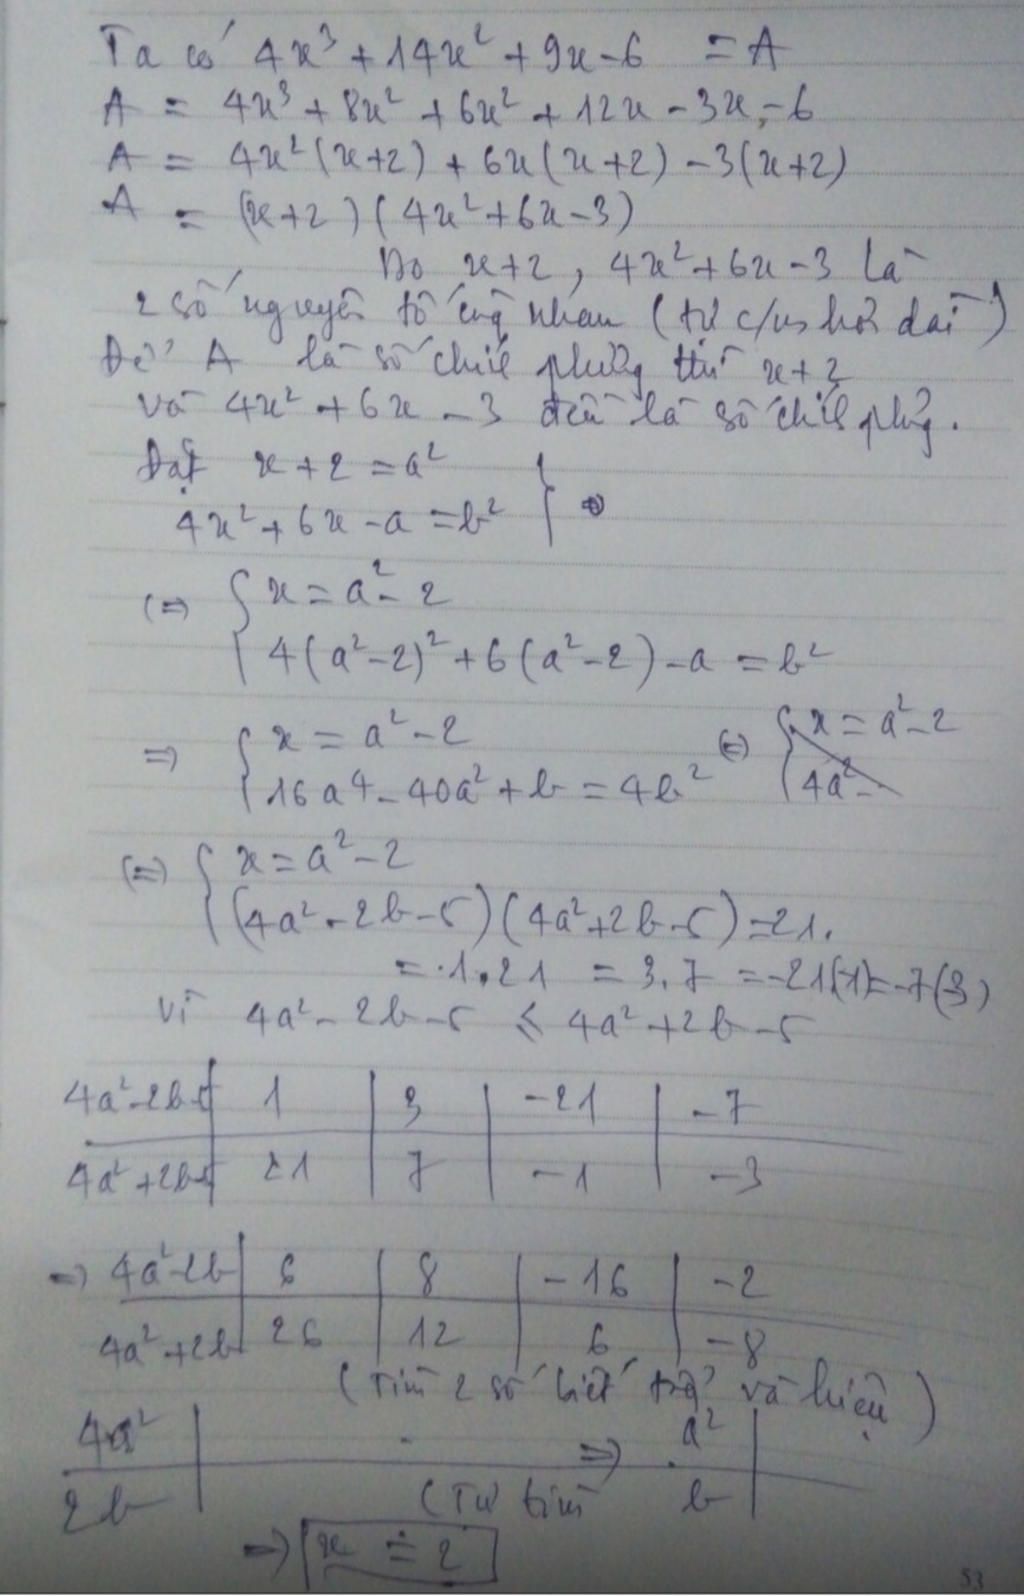 Ta có 4x³ + 14x² + 9x - 6 = A
A = 4x³ + 8x² + 6x² + 12x - 3x - 6
A = 4x²(x+2) + 6x(x+2) - 3(x+2)
A = (x+2)(4x² + 6x - 3)
Do x+2, 4x² + 6x - 3 là
2 số nguyên tố cùng nhau (tự c/m hơi dài)
Để A là số chính phương thì x+2
và 4x² + 6x - 3 đều là số chính phương.
Đặt x + 2 = a²
4x² + 6x - a = b² } ⇔
⇔ { x = a² - 2
4(a² - 2)² + 6(a² - 2) - a = b²
⇒ { x = a² - 2 ⇔ { x = a² - 2
16a⁴ - 40a² + b = 4b² 4a² -
⇔ { x = a² - 2
(4a² - 2b - 5)(4a² + 2b - 5) = 21.
= 1.21 = 3.7 = -21(-1) = -7(-3)
Vì 4a² - 2b - 5 ≤ 4a² + 2b - 5
4a² - 2b - 5 | 1 | 3 | -21 | -7
4a² + 2b - 5 | 21 | 7 | -1 | -3
⇒ 4a² - 2b | 6 | 8 | -16 | -2
4a² + 2b | 26 | 12 | 6 | -8
(Tìm 2 số biết tổng và hiệu)
4a² | ⇒ a² |
2b | (Tự tìm b |
⇒ x = 2
53